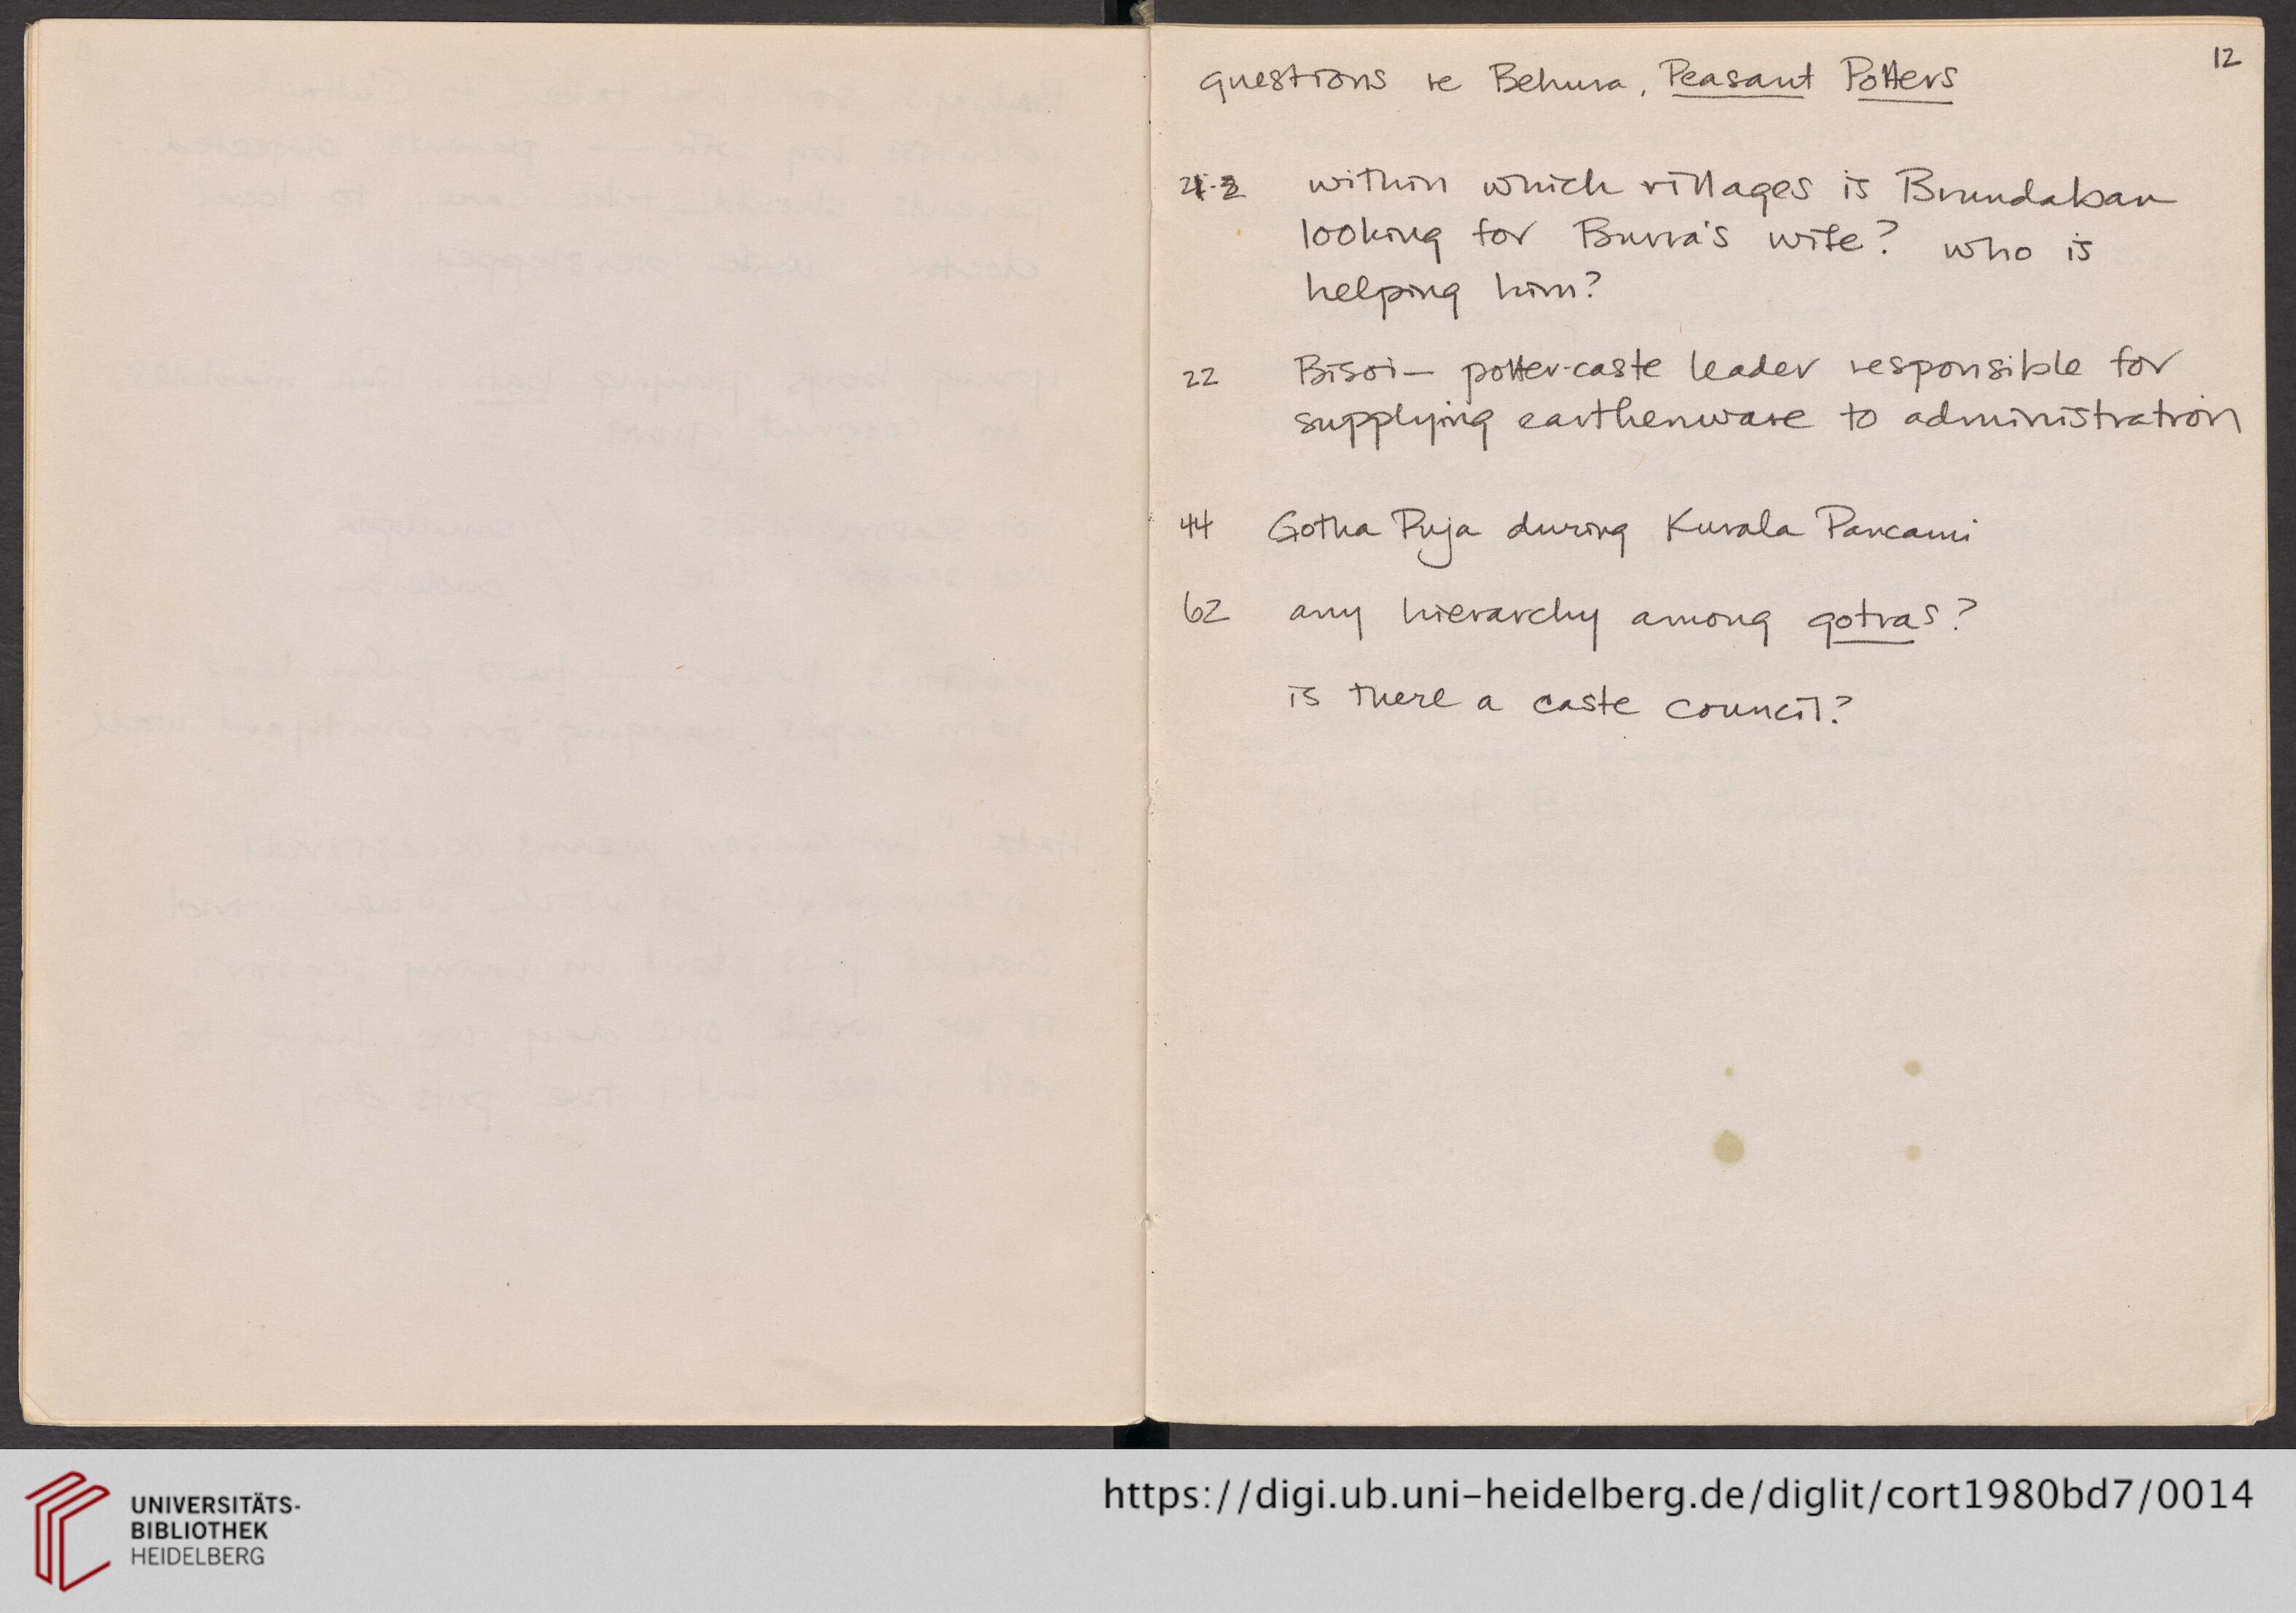 12
questions re Behura, Peasant Potters
within which villages is Brundaban
looking for Burra's wife? who is
helping him?
22 Bisoi — potter-caste leader responsible for
supplying earthenware to administration
44 Gotha Puja during Kurala Pancami
62 any hierarchy among gotras?
is there a caste council?
UNIVERSITÄTS-
BIBLIOTHEK
HEIDELBERG
https://digi.ub.uni-heidelberg.de/diglit/cort1980bd7/0014